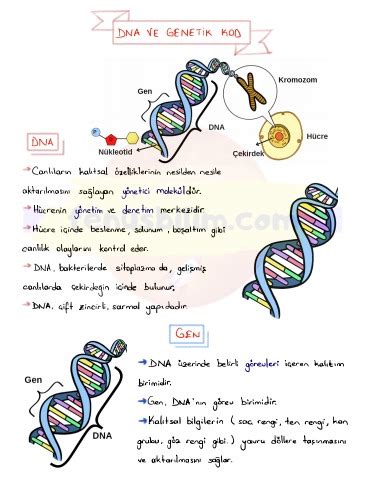 DNA VE GENETİK KOD
Kromozom
Gen
DNA
Hücre
Nükleotid
Çekirdek
DNA
→ Canlıların kalıtsal özelliklerinin nesilden nesile
aktarılmasını sağlayan yönetici moleküldür.
→ Hücrenin yönetim ve denetim merkezidir.
→ Hücre içinde beslenme, solunum, boşaltım gibi
canlılık olaylarını kontrol eder.
→ DNA, bakterilerde sitoplazmada, gelişmiş
canlılarda çekirdeğin içinde bulunur.
→ DNA, çift zincirli, sarmal yapıdadır.
GEN
Gen
DNA
→ DNA üzerinde belirli görevleri içeren kalıtım
birimidir.
→ Gen, DNA'nın görev birimidir.
→ Kalıtsal bilgilerin ( saç rengi, ten rengi, kan
grubu, göz rengi gibi. ) yavru döllere taşınmasını
ve aktarılmasını sağlar.